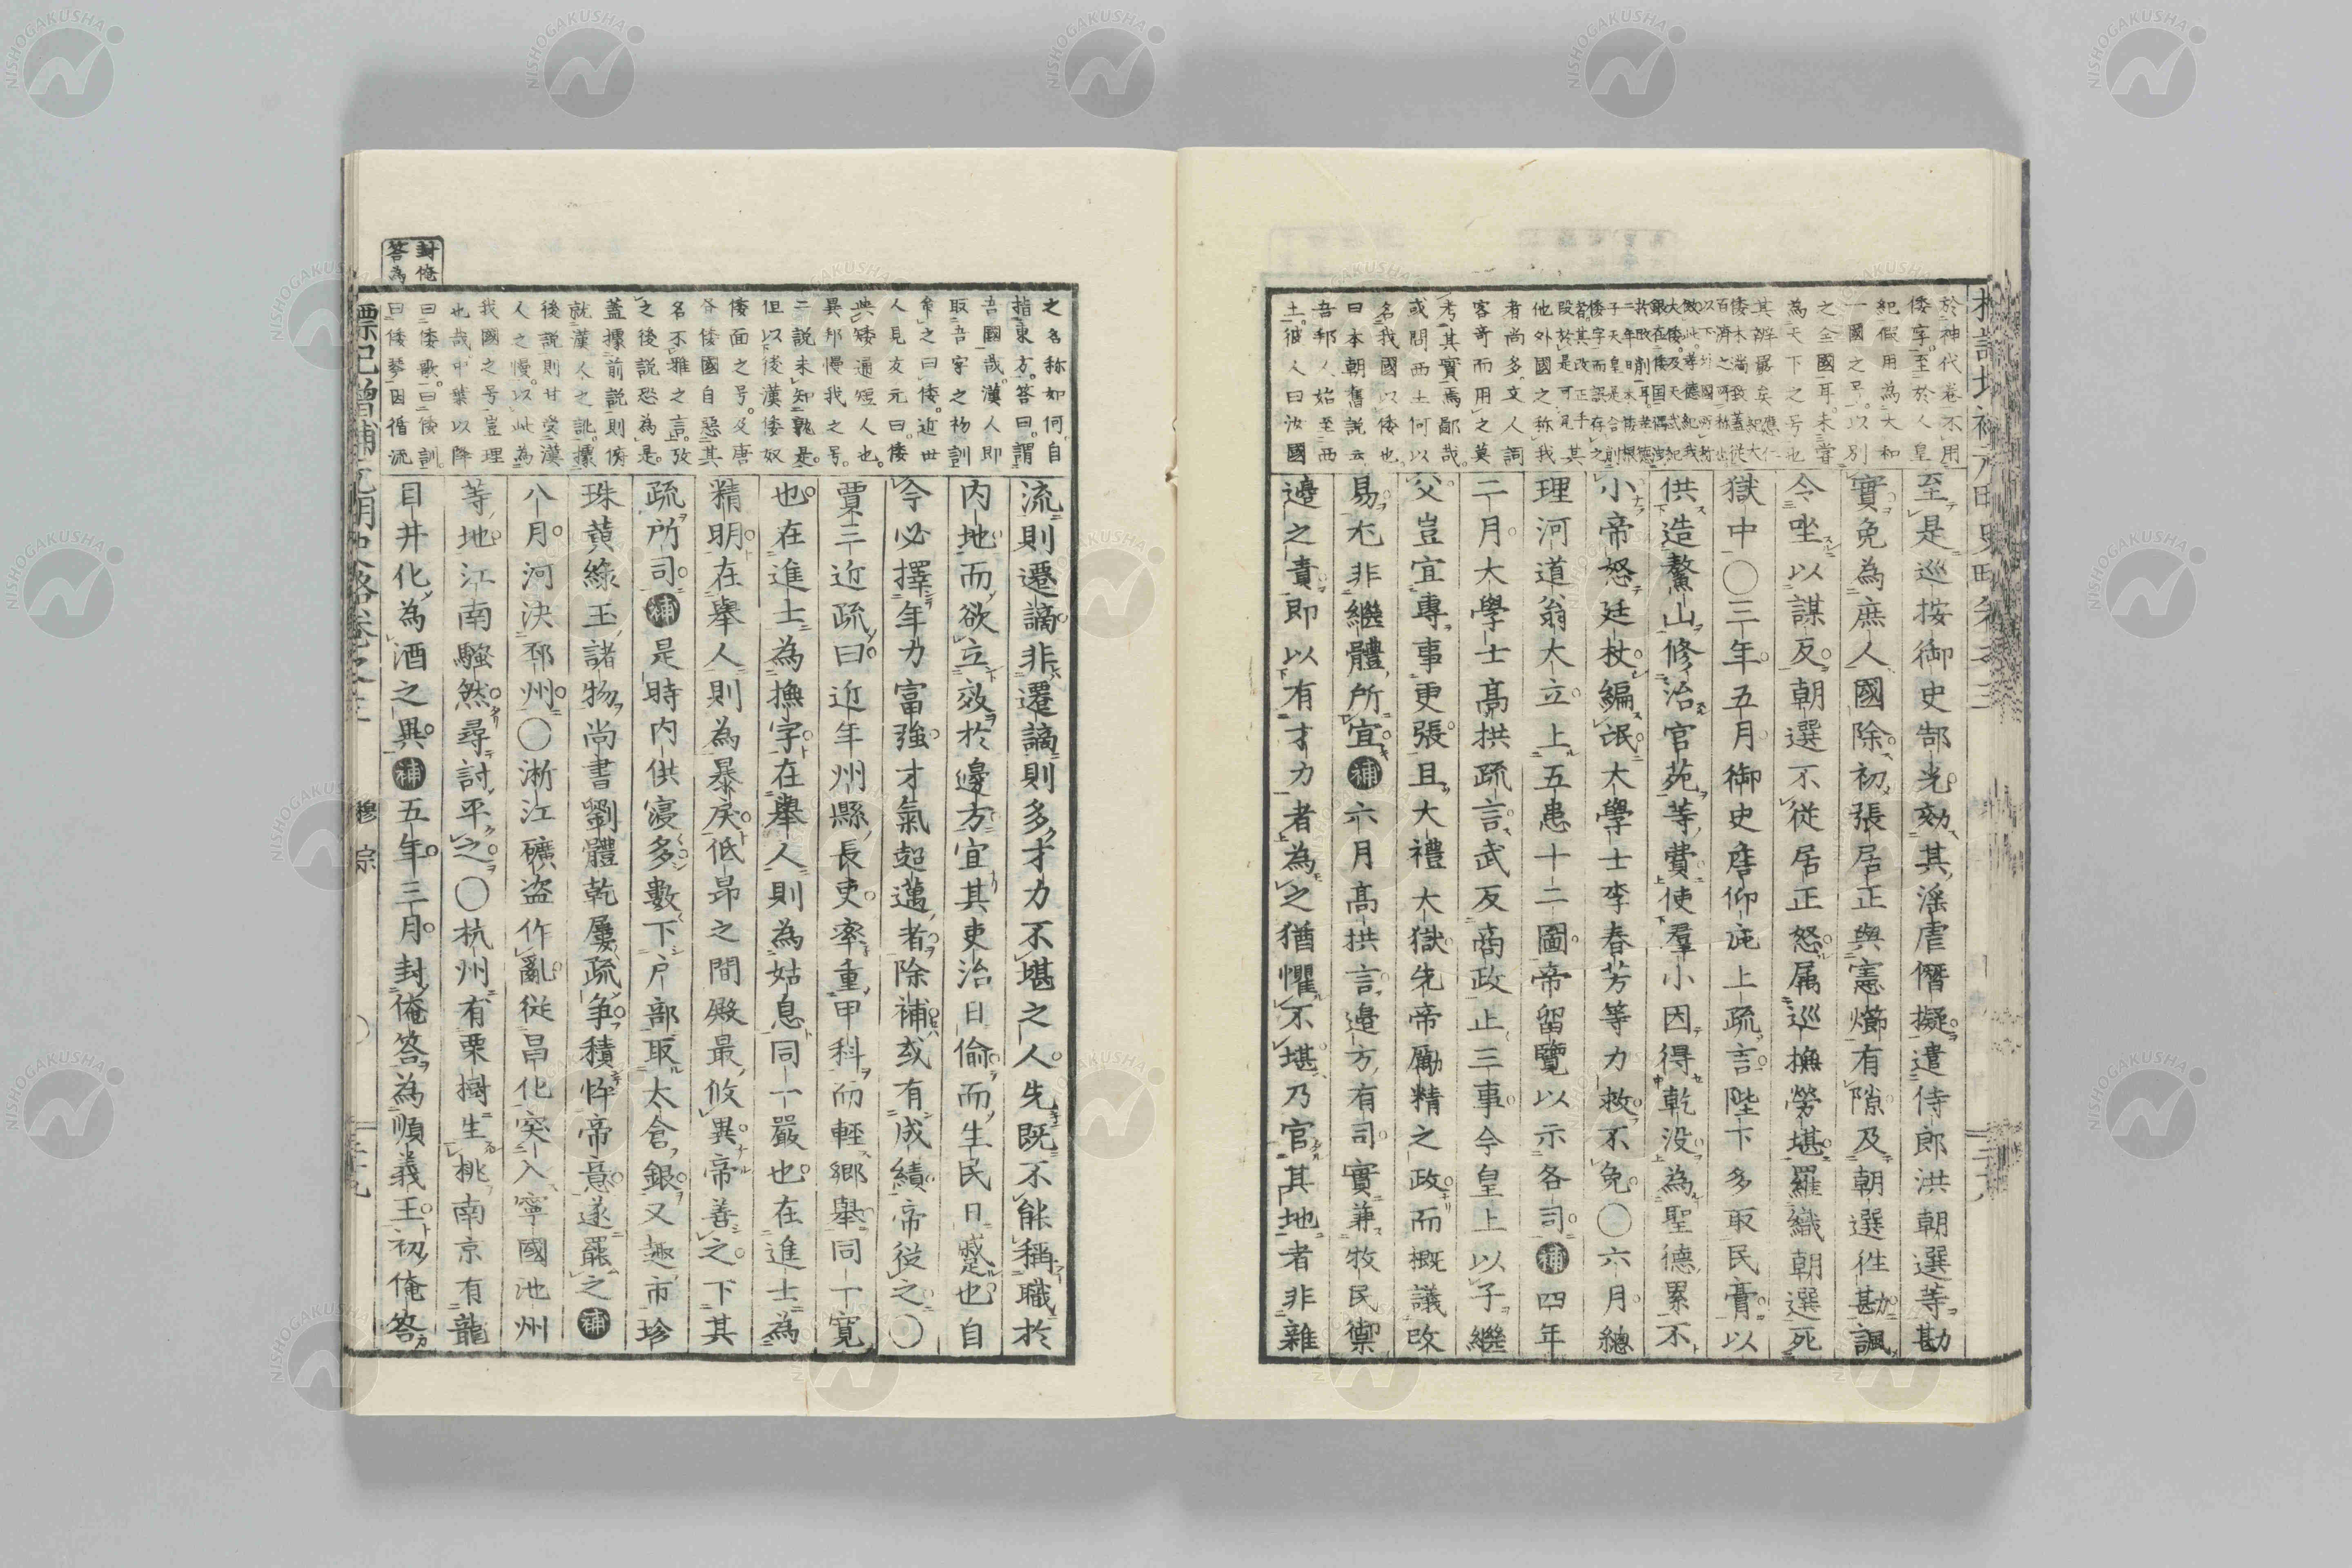 於神代卷不用
倭字至於人皇
紀假用為大和
一國之号以別
之全國耳未嘗
為天下之号也
其辨畧矣
他外國之称我
者尚多文人詞
客奇而用之莫
考其實焉鄙哉
或問西土何以
名我國以倭也
曰本朝舊説云
吾邦人始至西
土彼人曰汝國
至是巡按御史郜光効其淫虐僭擬遣侍郎洪朝選等勘
實免為庶人國除初張居正與憲㸅有隙及朝選徃勘諷
令坐以謀反朝選不從居正怒属巡撫勞堪羅織朝選死
獄中〇三年五月御史詹仰庇上疏言陛下多取民膏以
供造鰲山修治官苑等費使羣小因得乾没為聖德累不
小帝怒廷杖編氓大學士李春芳等力救不免〇六月總
理河道翁大立上五患十二圖帝留覽以示各司補四年
二月大學士高拱疏言武反商政止三事今皇上以子繼
父豈宜專事更張且大禮大獄先帝勵精之政而概議改
易尤非繼體所宜補六月高拱言邊方有司實兼牧民禦
邊之責即以有才力者為之猶懼不堪乃官其地者非雜
封俺
答為
之名称如何自
指東方答曰謂
吾國哉漢人即
取吾字之物訓
命之曰倭近世
人見友元曰倭
與矮通短人也
異邦慢我之号
二説未知孰是
但以後漢倭奴
倭面之号及唐
咎倭國自惡其
名不雅之言攷
之後説恐為是
蓋據前説則傍
就漢人之訛據
後説則甘受漢
人之慢以此為
我國之号豈理
也哉中葉以降
曰倭歌曰倭訓
曰倭琴因循流
流則遷謫非遷謫則多才力不堪之人先既不能稱職於
内地而欲立效於邊方宜其吏治日偷而生民日蹙也自
今必擇年力富強才氣超邁者除補或有成績帝從之〇
賈三近疏曰近年州縣長吏率重甲科而輕鄉舉同一寛
也在進士為撫字在舉人則為姑息同一嚴也在進士為
精明在舉人則為暴戻低昂之間殿最攸異帝善之下其
疏所司補是時内供寖多數下戸部取太倉銀又趣市珍
珠黄綠玉諸物尚書劉體乾屢疏争積忤帝意遂罷之補
八月河決邳州〇淅江礦盗作亂從昌化突入寧國池州
等地江南騷然尋討平之〇杭州有栗樹生桃南京有龍
目井化為酒之異補五年三月封俺答為順義王初俺答
標記增補元明史略卷之三 穆宗